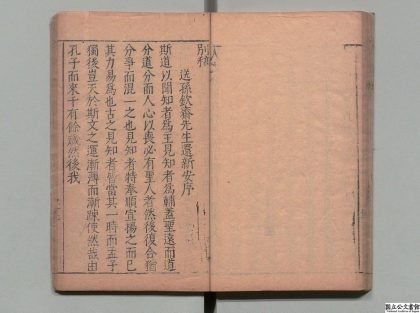 別稿
送孫欽齋先生還新安序
斯道以聞知者為主見知者為輔蓋聖遠而道
分道分而人心以喪必有聖人者然後復合猶
分爭而混一之也見知者特奉順宣揚之而已
其力易為也古之見知者皆當其一時而孟子
獨後豈天於斯文之運漸薄而漸踈使然哉由
孔子而來千有餘歲然後我
國立公文書館